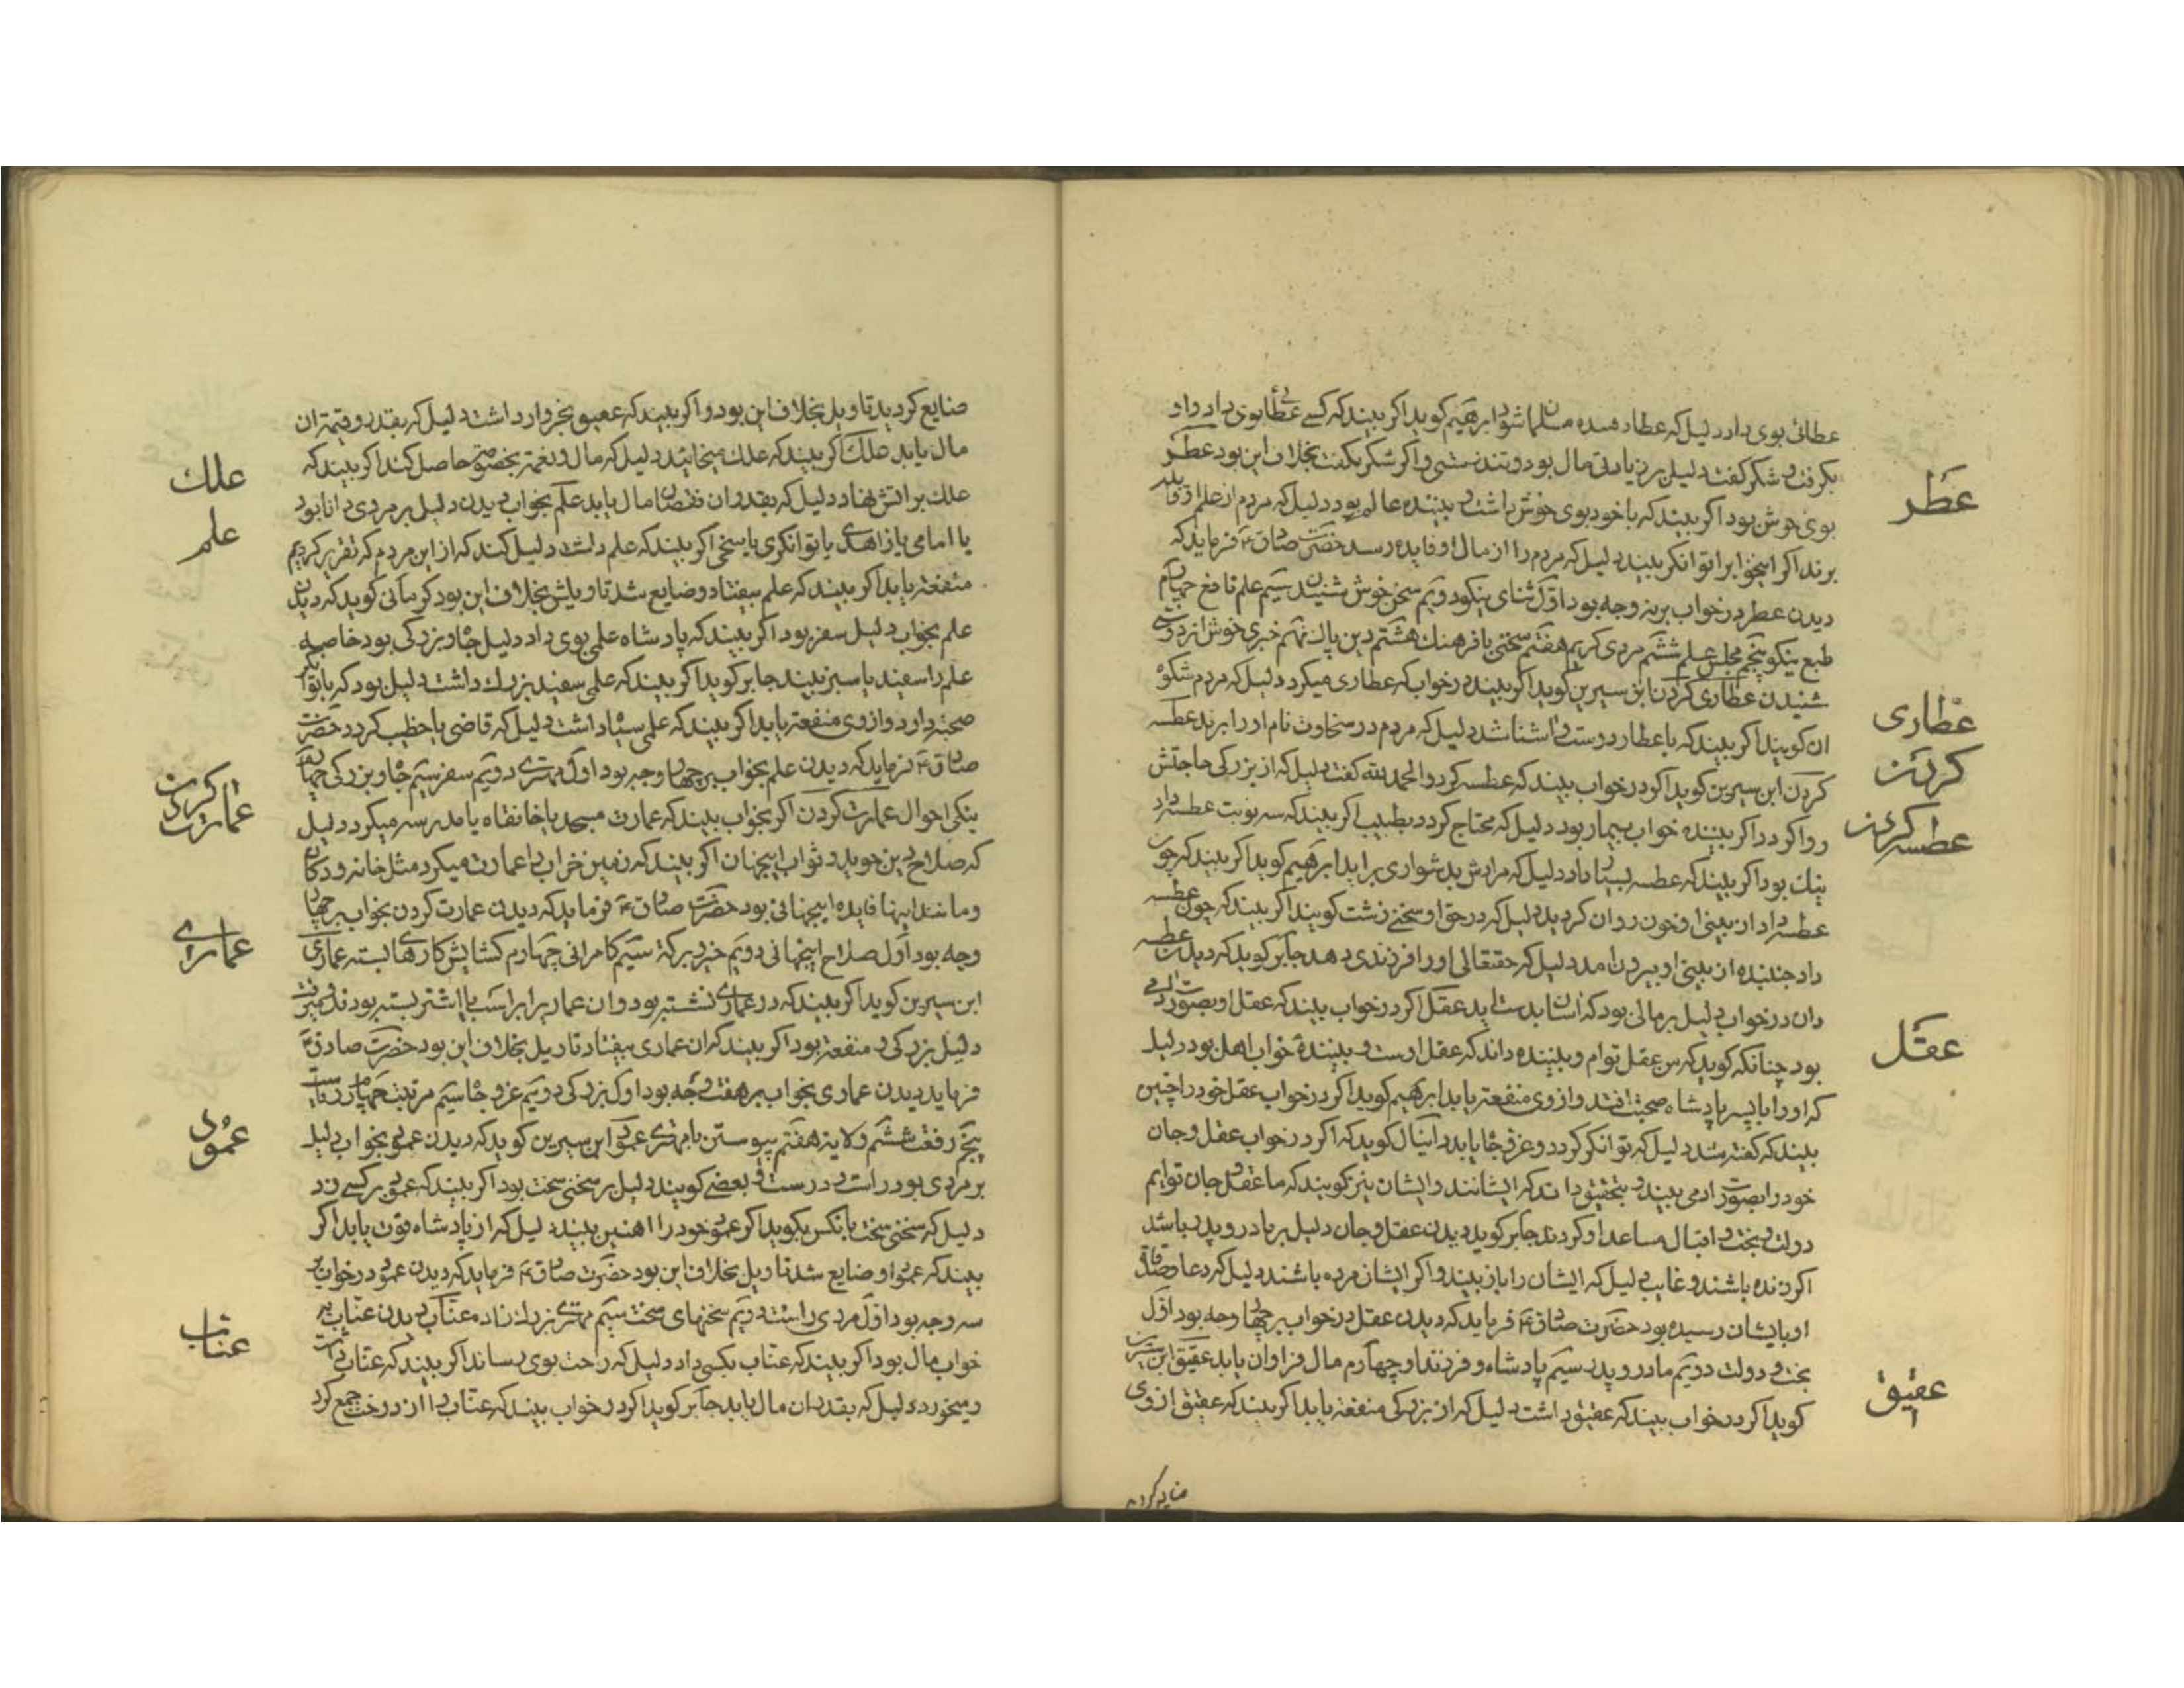 عطائی بوی داد دلیل که عطا دهنده مسلمان شود ابرهیم کوید اکر بیند که کسے عطائی بوی داد و او
بکرفت و شکر کفت دلیل بر زیادتی مال بود و تندرستی و اکر شکر نکفت بخلاف این بود عطر
بوی خوش بود اکر بیند که با خود بوی خوش داشت و بیننده عالم بود دلیل که مردم از علم او فایده
برند اکر این خواب را توانکر بیند دلیل که مردم را از مال او فایده رسد حضرت صادق ع فرماید که
دیدن عطر در خواب بر نه وجه بود اول ثنای نیکو دویم سخن خوش شنیدن سیم علم نافع چهارم
طبع نیکو پنجم مجلس علم ششم مردی کریم هفتم سخنی با فرهنك هشتم دین پاك نهم خبری خوش از
شنیدن عطاری کردن ابن سیرین کوید اکر بیننده در خواب که عطاری میکرد دلیل که مردم شکر
ان کویند اکر بیند که با عطار دوست و اشنا شد دلیل که مردم در سخاوت نام او را برند عطسه
کردن ابن سیرین کوید اکر در خواب بیند که عطسه کرد و الحمد لله کفت دلیل که از بزرکی حاجتش
روا کردد اکر بیننده خواب بیمار بود دلیل که محتاج کردد بطبیب اکر بیند که سه نوبت عطسه داد
نیك بود اکر بیند که عطسه بسیار داد دلیل که مرادش بدشواری براید ابرهیم کوید اکر بیند که چون
عطسه داد از بینی او خون روان کردید دلیل که در حق او سخنے زشت کویند اکر بیند که چون عطسه
داد جنبنده از بینی او بیرون امد دلیل که حقتعالی او را فرزندی دهد جابر کوید که دیدن عطسه
دادن در خواب دلیل بر مالی بود که اسان بدست اید عقل اکر در خواب بیند که عقل او بصورت ادمی
بود چنانکه کوید که من عقل توام و بیننده داند که عقل اوست و بیننده خواب اهل بود دلیل
که او را با پسر پادشاه صحبت افتد و از وی منفعت یابد ابرهیم کوید اکر در خواب عقل خود را چنین
بیند که کفته شد دلیل که توانکر کردد و عز و جاه یابد دانیال کوید که اکر در خواب عقل و جان
خود را بصورت ادمی بیند و بتحقیق داند که ایشانند و ایشان نیز کویند که ما عقل و جان توایم
دولت و بخت و اقبال مساعد او کردند جابر کوید دیدن عقل و جان دلیل بر مادر و پدر باشد
اکر زنده باشند و غایب دلیل که ایشان را باز بیند و اکر ایشان مرده باشند دلیل که دعا و صدقات
او بایشان رسیده بود حضرت صادق ع فرماید که دیدن عقل در خواب بر چهار وجه بود اول
بخت و دولت دویم مادر و پدر سیم پادشاه و فرزند او چهارم مال فراوان یابد عقیق ابن سیرین
کوید اکر در خواب بیند که عقیق داشت دلیل که از بزرکی منفعت یابد اکر بیند که عقیق از وی
عطر
عطاری
کردن
عطسه کردن
عقل
عقیق
ضایع کردید تاویل بخلاف این بود و اکر بیند که عقیق بخروار داشت دلیل که بقدر و قیمت ان
مال یابد علك اکر بیند که علك میخائید دلیل که مال و نعمت بخصومت حاصل کند اکر بیند که
علك بر اتش نهاد دلیل که بقدر ان نقصان مال یابد علم بخواب دیدن دلیل بر مردی دانا بود
یا امامی یا زاهدی یا توانکری یا سخی اکر بیند که علم داشت دلیل کند که از این مردم که تقریر کردیم
منفعت یابد اکر بیند که علم بیفتاد و ضایع شد تاویلش بخلاف این بود کرمانی کوید که دیدن
علم بخواب دلیل سفر بود اکر بیند که پادشاه علمی بوی داد دلیل جاه و بزرکی بود خاصه
علم را سفید یا سبز بیند جابر کوید اکر بیند که علمی سفید بزرك داشت دلیل بود که با توانکر
صحبت دارد و از وی منفعت یابد اکر بیند که علمی سیاه داشت دلیل که قاضی یا خطیب کردد حضرت
صادق ع فرماید که دیدن علم بخواب بر چهار وجه بود اول مهتری دویم سفر سیم جاه و بزرکی چهارم
نیکی احوال عمارت کردن اکر بخواب بیند که عمارت مسجد یا خانقاه یا مدرسه میکرد دلیل
که صلاح دین جوید و ثواب اینجهان اکر بیند که زمین خراب را عمارت میکرد مثل خانه و دکان
و مانند اینها فایده اینجهانی بود حضرت صادق ع فرماید که دیدن عمارت کردن بخواب بر چهار
وجه بود اول صلاح اینجهانی دویم خیر و برکت سیم کامرانی چهارم کشایش کارهای بسته عماری
ابن سیرین کوید اکر بیند که در عماری نشسته بود و ان عماری را بر اسب یا اشتر بسته بودند و میرفت
دلیل بزرکی و منفعت بود اکر بیند که ان عماری بیفتاد تاویل بخلاف این بود حضرت صادق ع
فرماید دیدن عماری بخواب بر هفت وجه بود اول بزرکی دویم عز و جاه سیم مرتبت چهارم ریاست
پنجم رفعت ششم ولایة هفتم پیوستن با مهتری عمود ابن سیرین کوید که دیدن عمود بخواب دلیل
بر مردی بود راست و درست و بعضے کویند دلیل بر سخنی سخت بود اکر بیند که عمود بر کسے زد
دلیل که سخنی سخت بانکس بکوید اکر عمود خود را اهنین بیند دلیل که از پادشاه قوت یابد اکر
بیند که عمود او ضایع شد تاویل بخلاف این بود حضرت صادق ع فرماید که دیدن عمود در خواب بر
سه وجه بود اول مردی راست دویم سخنهای سخت سیم مهتری بزرك زاده عناب دیدن عناب به
خواب مال بود اکر بیند که عناب بکسی داد دلیل که راحت بوی رساند اکر بیند که عناب داشت
و میخورد دلیل که بقدر ان مال یابد جابر کوید اکر در خواب بیند که عناب را از درخت جمع کرد
علك
علم
عمارت کردن
عماری
عمود
عناب